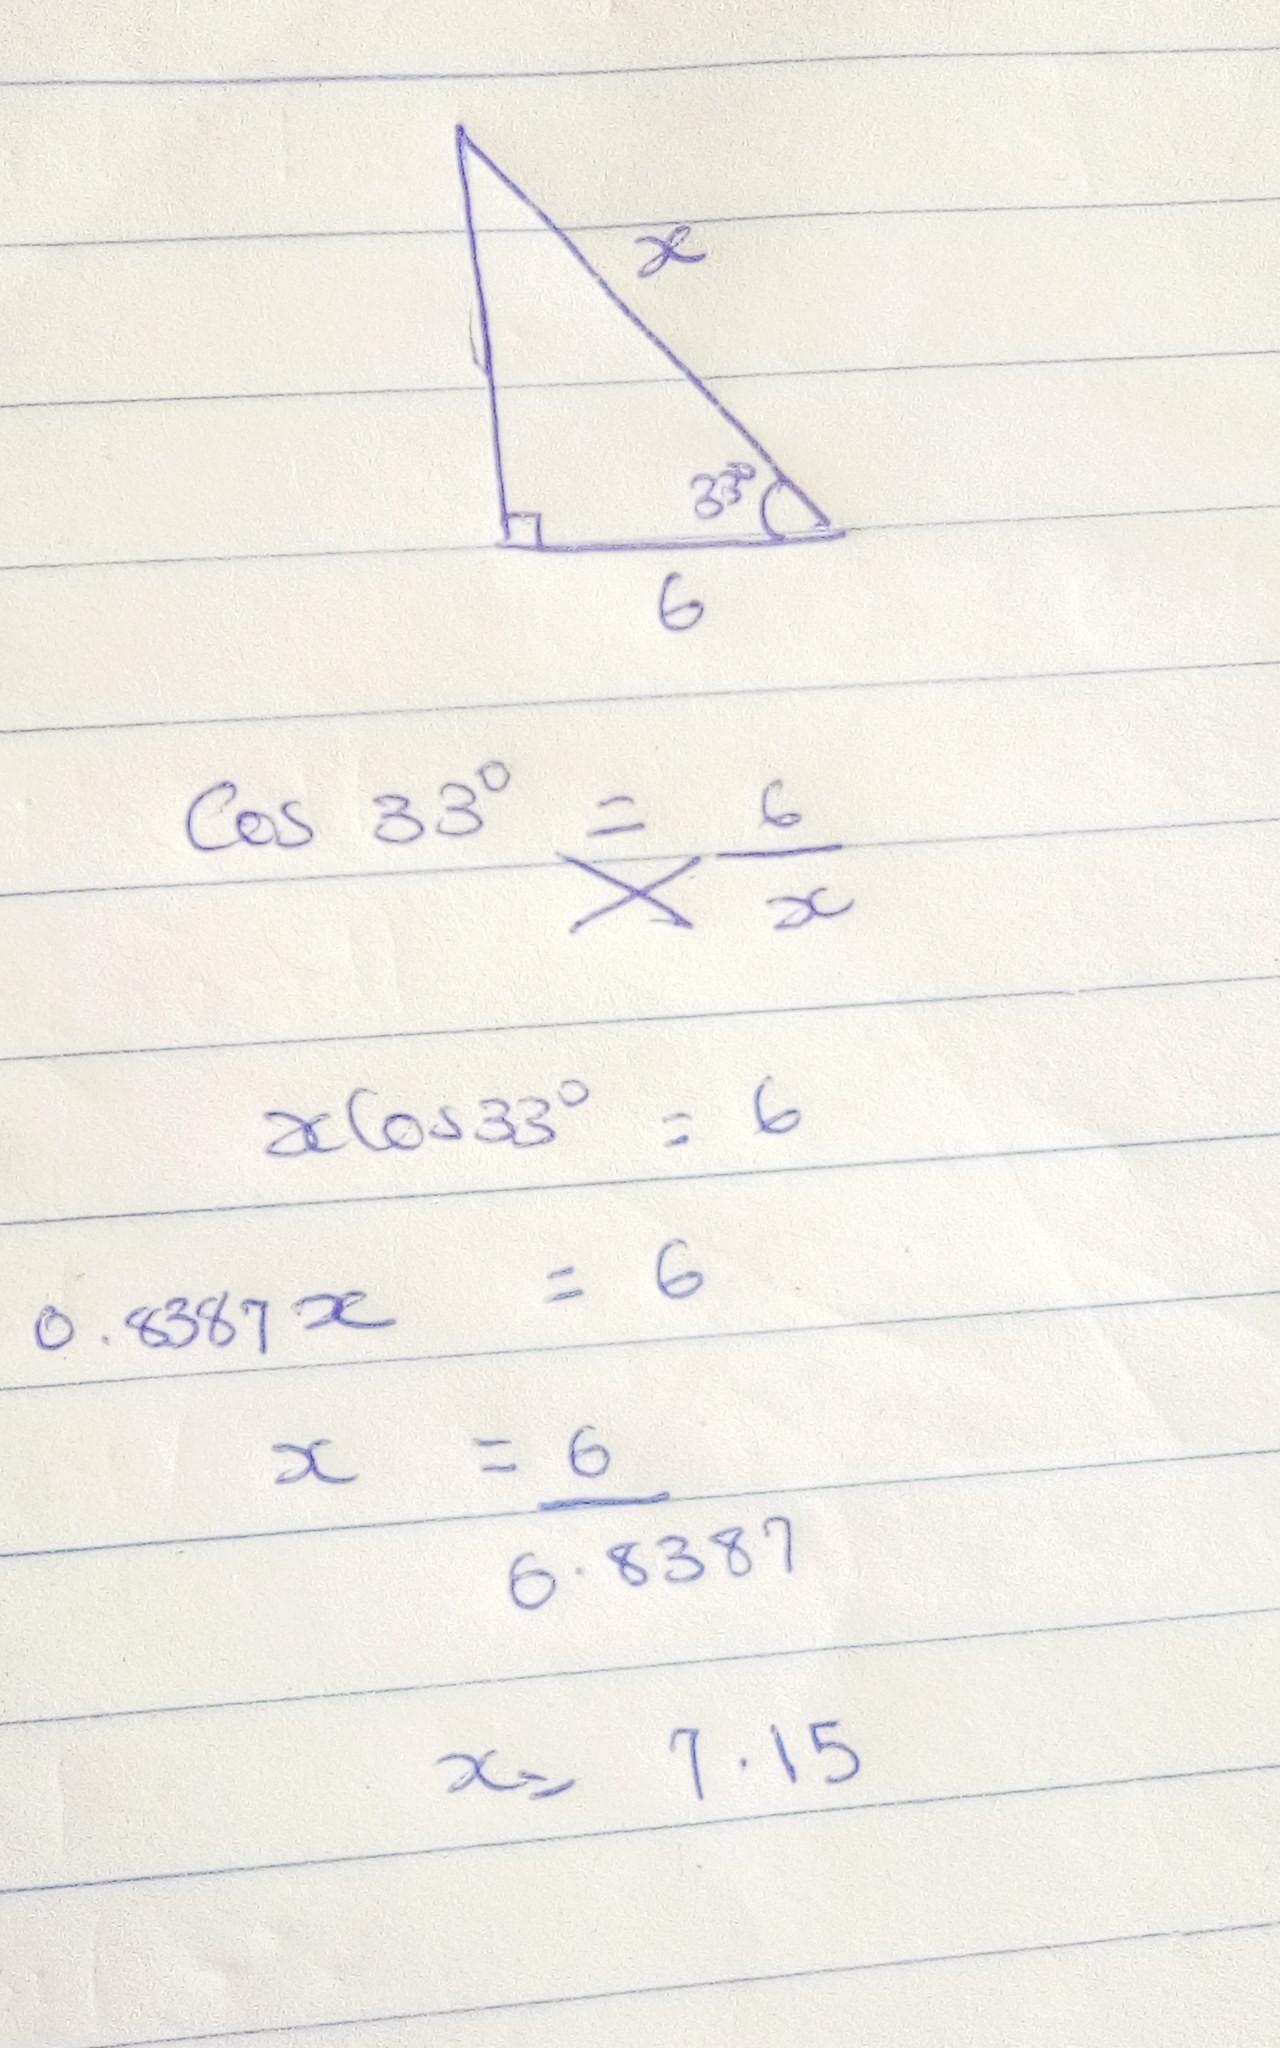 x
33°
6
Cos 33° = 6/x
xCos33° = 6
0.8387x = 6
x = 6/6.8387
x= 7.15